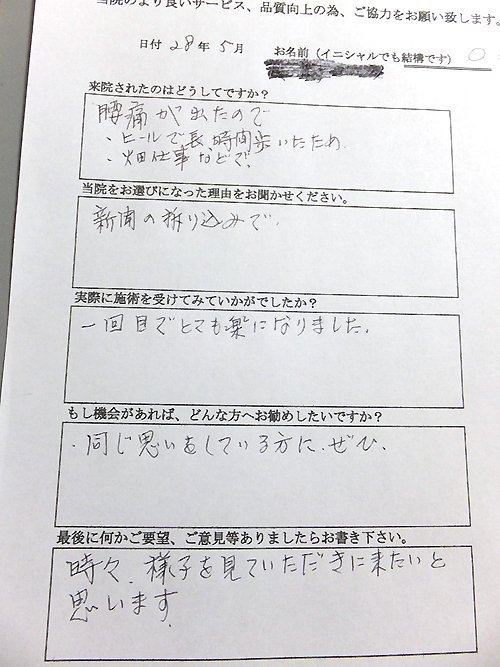 当院のより良いサービス、品質向上の為、ご協力をお願い致します。
日付 28年 5月 お名前(イニシャルでも結構です) O
来院されたのはどうしてですか?
腰痛が出たので
・ヒールで長時間歩いたため
・畑仕事などで。
当院をお選びになった理由をお聞かせください。
新聞の折り込みで.
実際に施術を受けてみていかがでしたか?
一回目でとても楽になりました.
もし機会があれば、どんな方へお勧めしたいですか?
・同じ思いをしている方に、ぜひ、
最後に何かご要望、ご意見等ありましたらお書き下さい。
時々、様子を見ていただきに来たいと
思います.